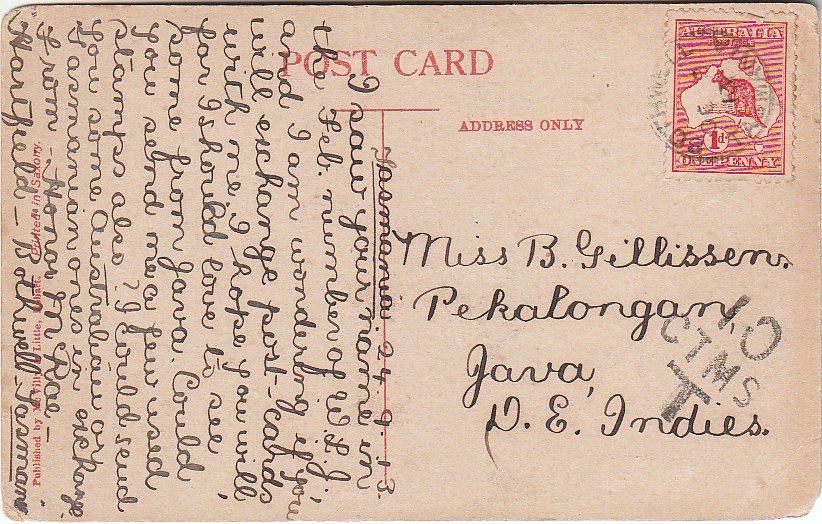 POST CARD
ADDRESS ONLY
AUSTRALIA
POSTAGE
1d
ONE PENNY
BOTHWELL
Tasmania. 24. 9. 13.
I saw your name in
the Feb. number of W.L.J.
and I am wondering if you
will exchange post-cards
with me, I hope you will
for I should love to see
some from Java. Could
you send me a few used
stamps also? I could send
you some Australian or
Tasmanian ones in exchange.
From - Honor McRae -
Hartfield - Bothwell - Tasmania
Miss B. Gillissen.
Pekalongan,
Java,
D. E. Indies.
10
CTMS
T
Published by McVilly & Little, Hobart. Printed in Saxony.